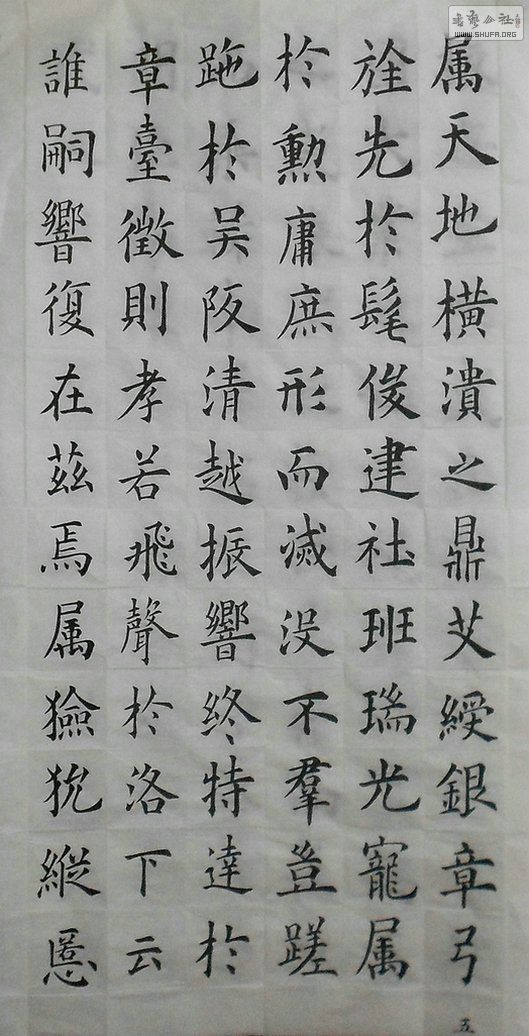 書藝公社
WWW.SHUFA.ORG
属天地橫潰之鼎艾綬銀章弓
旌先於髦俊建社班瑞光寵属
於勳庸庶形而滅没不羣豈蹉
跎於吴阪清越振響終特達於
章臺徵則孝若飛聲於洛下云
誰嗣響復在茲焉属獫狁縱慝
五